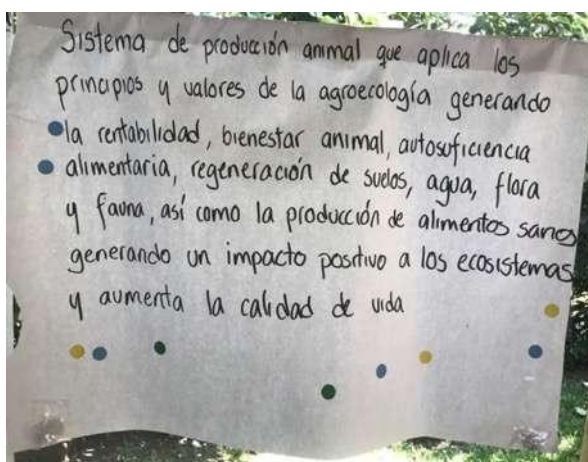 Sistema de producción animal que aplica los
principios y valores de la agroecología generando
la rentabilidad, bienestar animal, autosuficiencia
alimentaria, regeneración de suelos, agua, flora
y fauna, así como la producción de alimentos sanos
generando un impacto positivo a los ecosistemas
y aumenta la calidad de vida